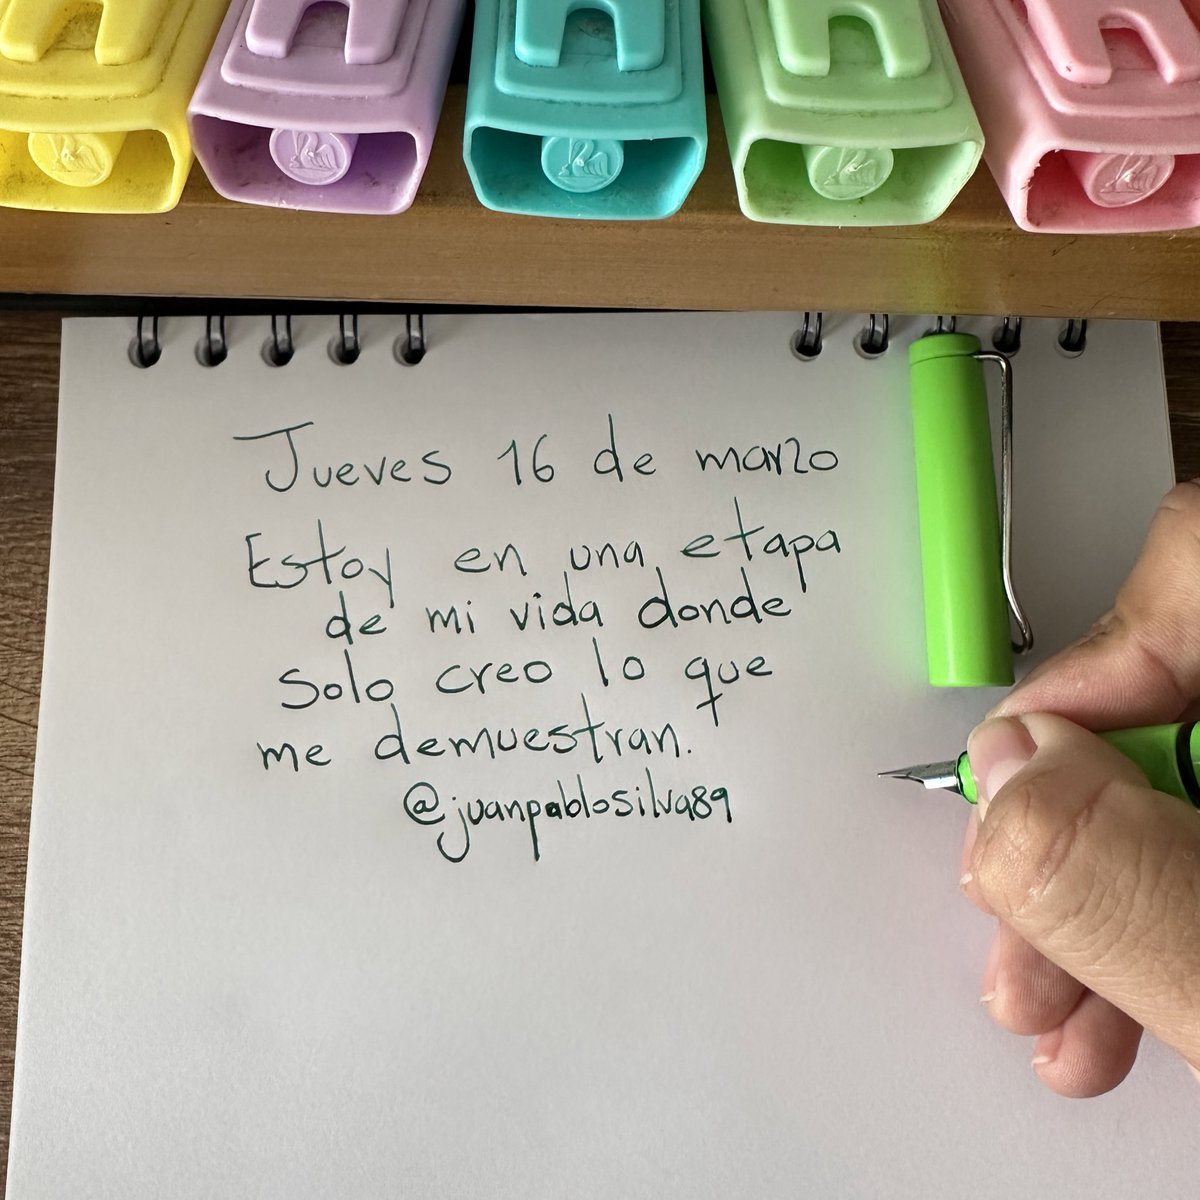 Jueves 16 de marzo
Estoy en una etapa
de mi vida donde
solo creo lo que
me demuestran.
@juanpablosilva89